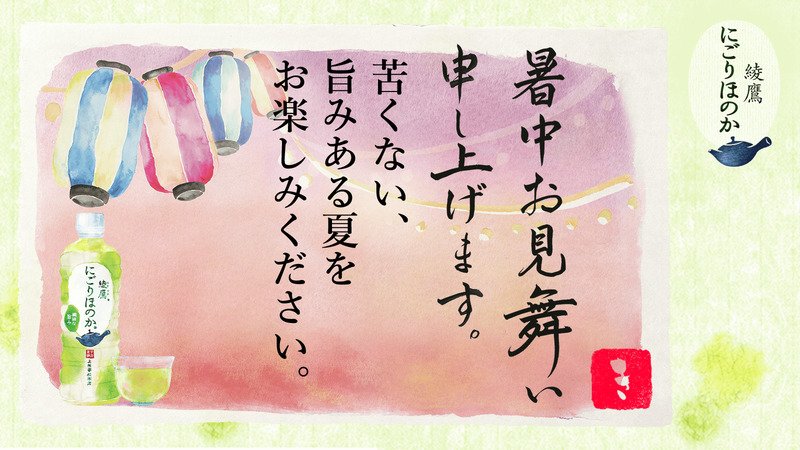 暑中お見舞い
申し上げます。
苦くない、
旨みある夏を
お楽しみください。
綾鷹
にごりほのか
綾鷹
にごりほのか